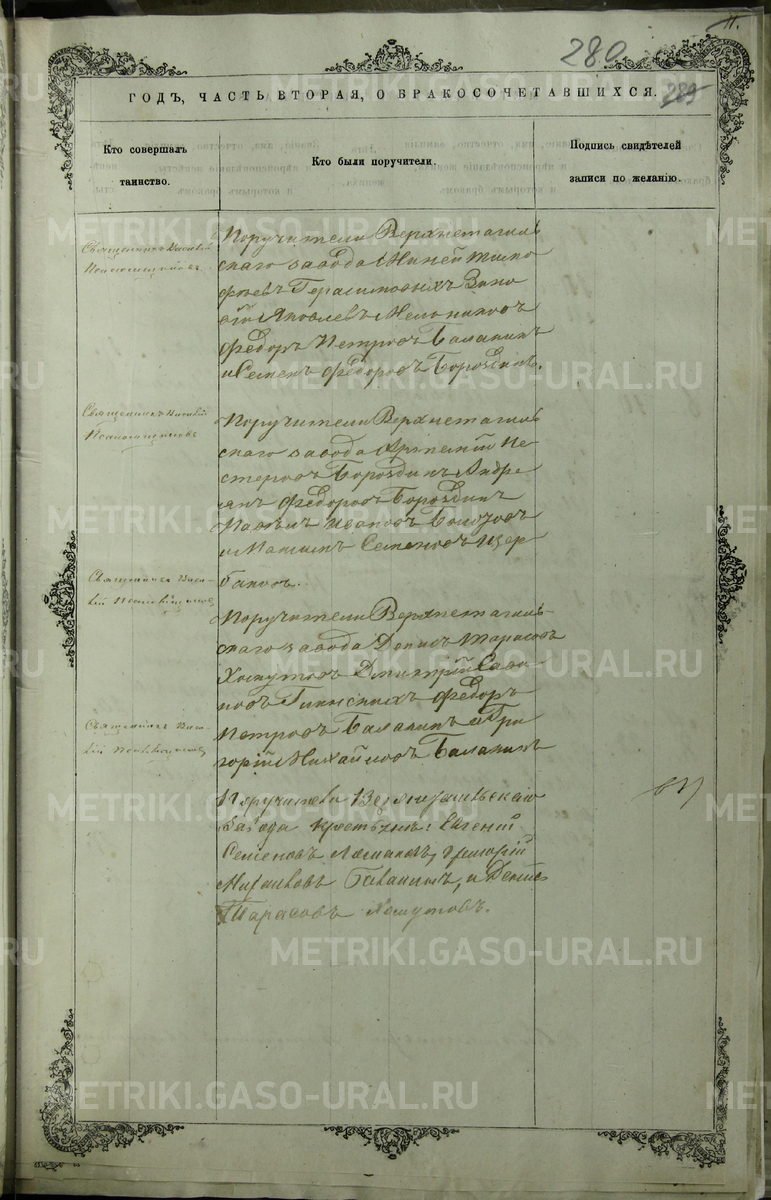 11.
280
289
ГОДЪ, ЧАСТЬ ВТОРАЯ, О БРАКОСОЧЕТАВШИХСЯ.
Кто совершалъ
таинство.
Кто были поручители.
Подпись свидѣтелей
записи по желанію.
Священникъ Василій
Поручители Верхнетагиль
скаго завода Миней Тимо
фѣевъ Герасимовыхъ Зино
вій Яковлевъ Мельниковъ
Федоръ Петровъ Баланинъ
и Семенъ Федоровъ Бороздинъ.
Священникъ Василій
Поручители Верхнетагиль
скаго завода Артемій Не
стеровъ Бороздинъ Андре
янъ Федоровъ Бороздинъ
Павелъ Ивановъ
и Семеновъ Щер
баковъ.
Священникъ Васи-
лій
Поручители Верхнетагиль-
скаго завода Денисъ Тарасовъ
Хомутовъ Дмитрій Савви
новъ Федоръ
Петровъ Баланинъ и Гри
горій Михайловъ Баланинъ
Священникъ Васи-
лій
Поручители Верхнетагильскаго
завода крестьяне: Евгеній
Семеновъ Григорій
Михаиловъ Баланинъ, и Денисъ
Тарасовъ Хомутовъ.
METRIKI.GASO-URAL.RU